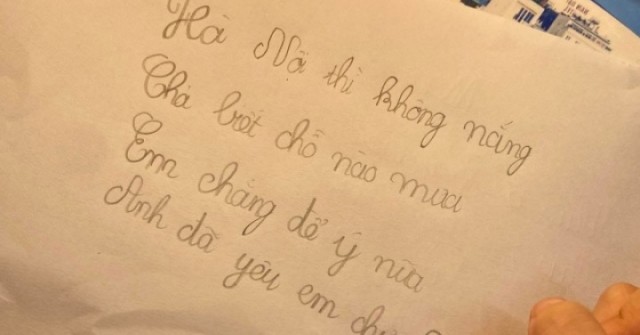 Hà Nội thì không nắng
Chả biết chỗ nào mưa
Em chẳng để ý nữa
Anh đã yêu em